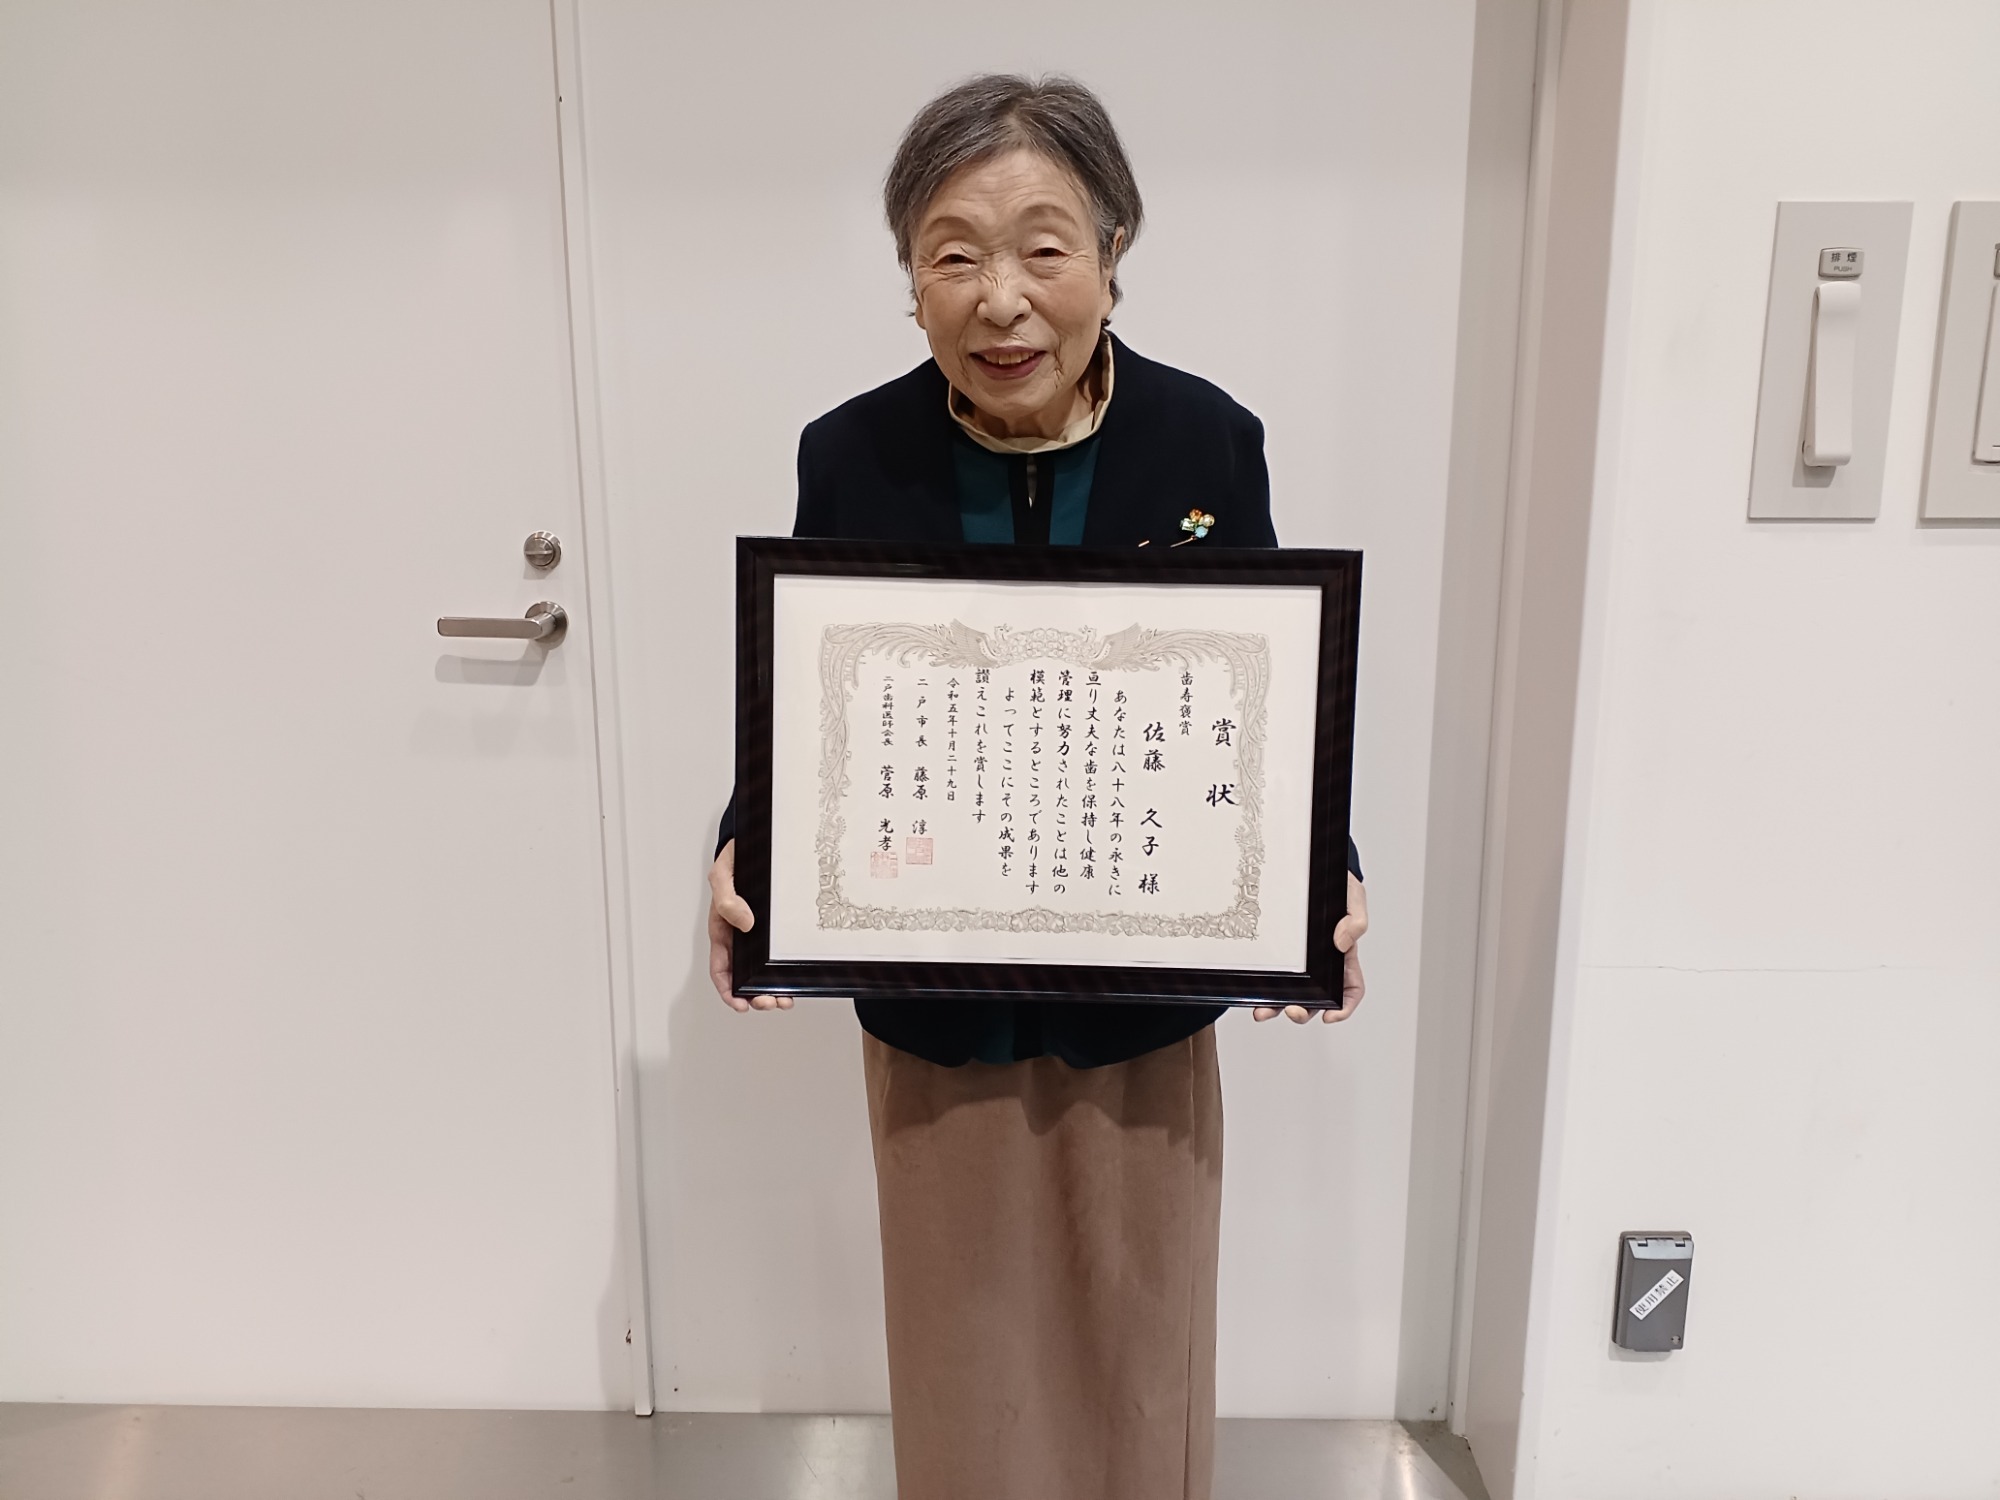 賞状
歯寿褒賞
佐藤 久子 様
あなたは八十八年の永きに
亘り丈夫な歯を保持し健康
管理に努力されたことは他の
模範とするところであります
よってここにその成果を
讃えこれを賞します
令和五年十月二十九日
二戸市長 藤原 淳
二戸歯科医師会長 菅原 光孝
排煙
PUSH
使用禁止